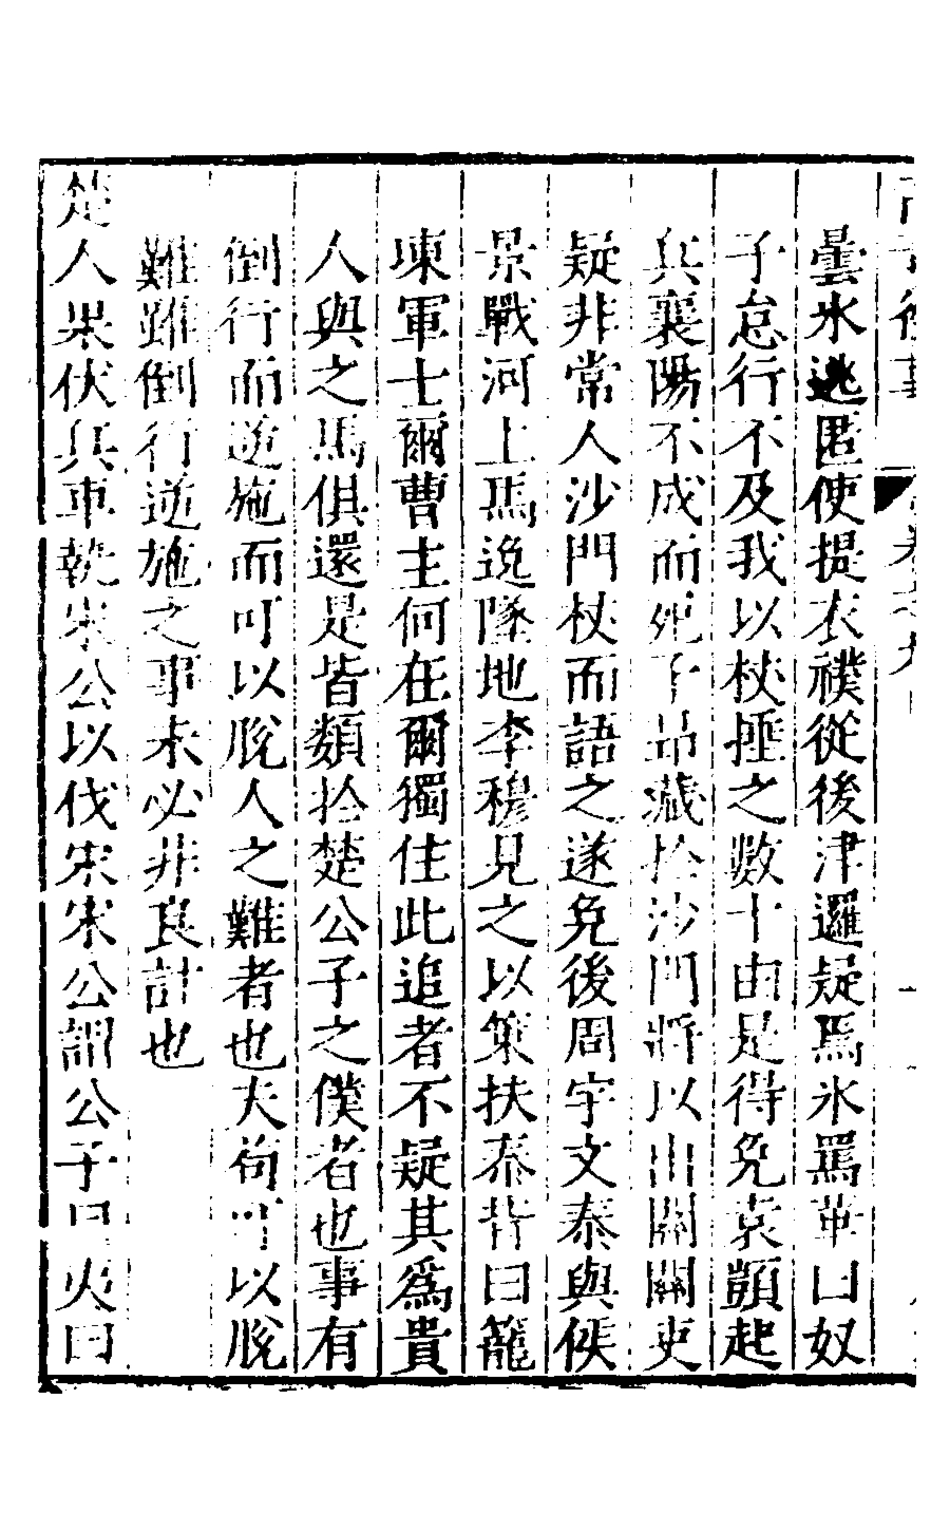 曇氷逃匿使提衣襆從後津邏疑焉氷罵華曰奴
子怠行不及我以杖捶之數十由是得免袁顗起
兵襄陽不成而死子昂藏於沙門將以出關關吏
疑非常人沙門杖而語之遂免後周宇文泰與侯
景戰河上馬逸墜地李穆見之以策扶泰背曰籠
東軍士爾曹主何在爾獨住此追者不疑其爲貴
人與之馬俱還是皆類於楚公子之僕者也事有
倒行而逆施而可以脫人之難者也夫苟可以脫
難雖倒行逆施之事未必非良計也
楚人果伏兵車執宋公以伐宋宋公謂公子曰夷曰